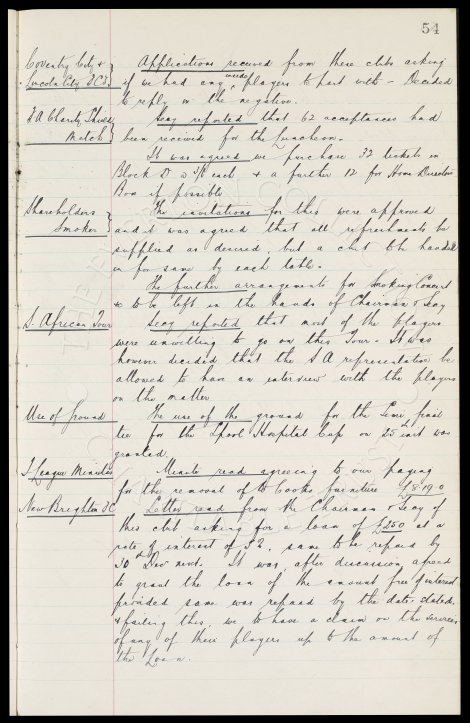 54
Coventry City &
Lincoln City F.C's.
Applications received from these clubs asking
if we had any inside players to part with - Decided
to reply in the negative.
F.A. Charity Shield
Match
Secy reported that 62 acceptances had
been received for the Luncheon.
It was agreed we purchase 32 tickets in
Block D @ each & a further 12 for Home Directors
Box if possible
Shareholders
Smoker
The invitations for this were approved
and it was agreed that all refreshments be
supplied as desired, but a chit to be handed
in for same by each table.
The further arrangements for Smoking Concert
to be left in the hands of Chairman & Secy
S. African Tour
Secy reported that most of the players
were unwilling to go on this Tour. It was
however decided that the S A representative be
allowed to have an interview with the players
on the matter
Use of Ground
The use of the ground for the Semi final
tie for the Lpool Hospital Cup on 25 inst was
granted.
F. League Minutes
Minute read agreeing to our paying
for the removal of Cooks furniture £8.19.0
New Brighton F.C
Letter read from the Chairman & Secy of
this club asking for a loan of £250 at a
rate of interest of 5%, same to be repaid by
30th Nov next. It was, after discussion, agreed
to grant the loan of the amount free of interest
provided same was repaid by the date stated,
& failing this, we to have a claim on the services
of any of their players up to the amount of
the Loan.